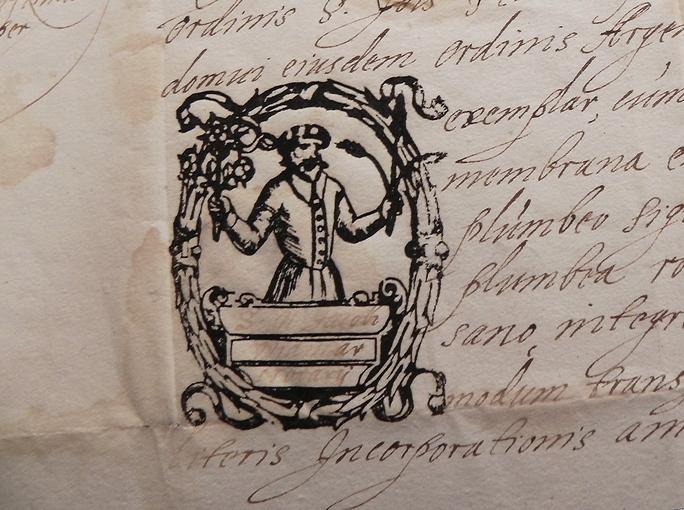 ordinis S. Jois
per
domui eiusdem ordinis Argen
exemplar, cum
membrana e
plumbeo sig
plumbea
sano, integr
ar
modum trans
literis Incorporationis am